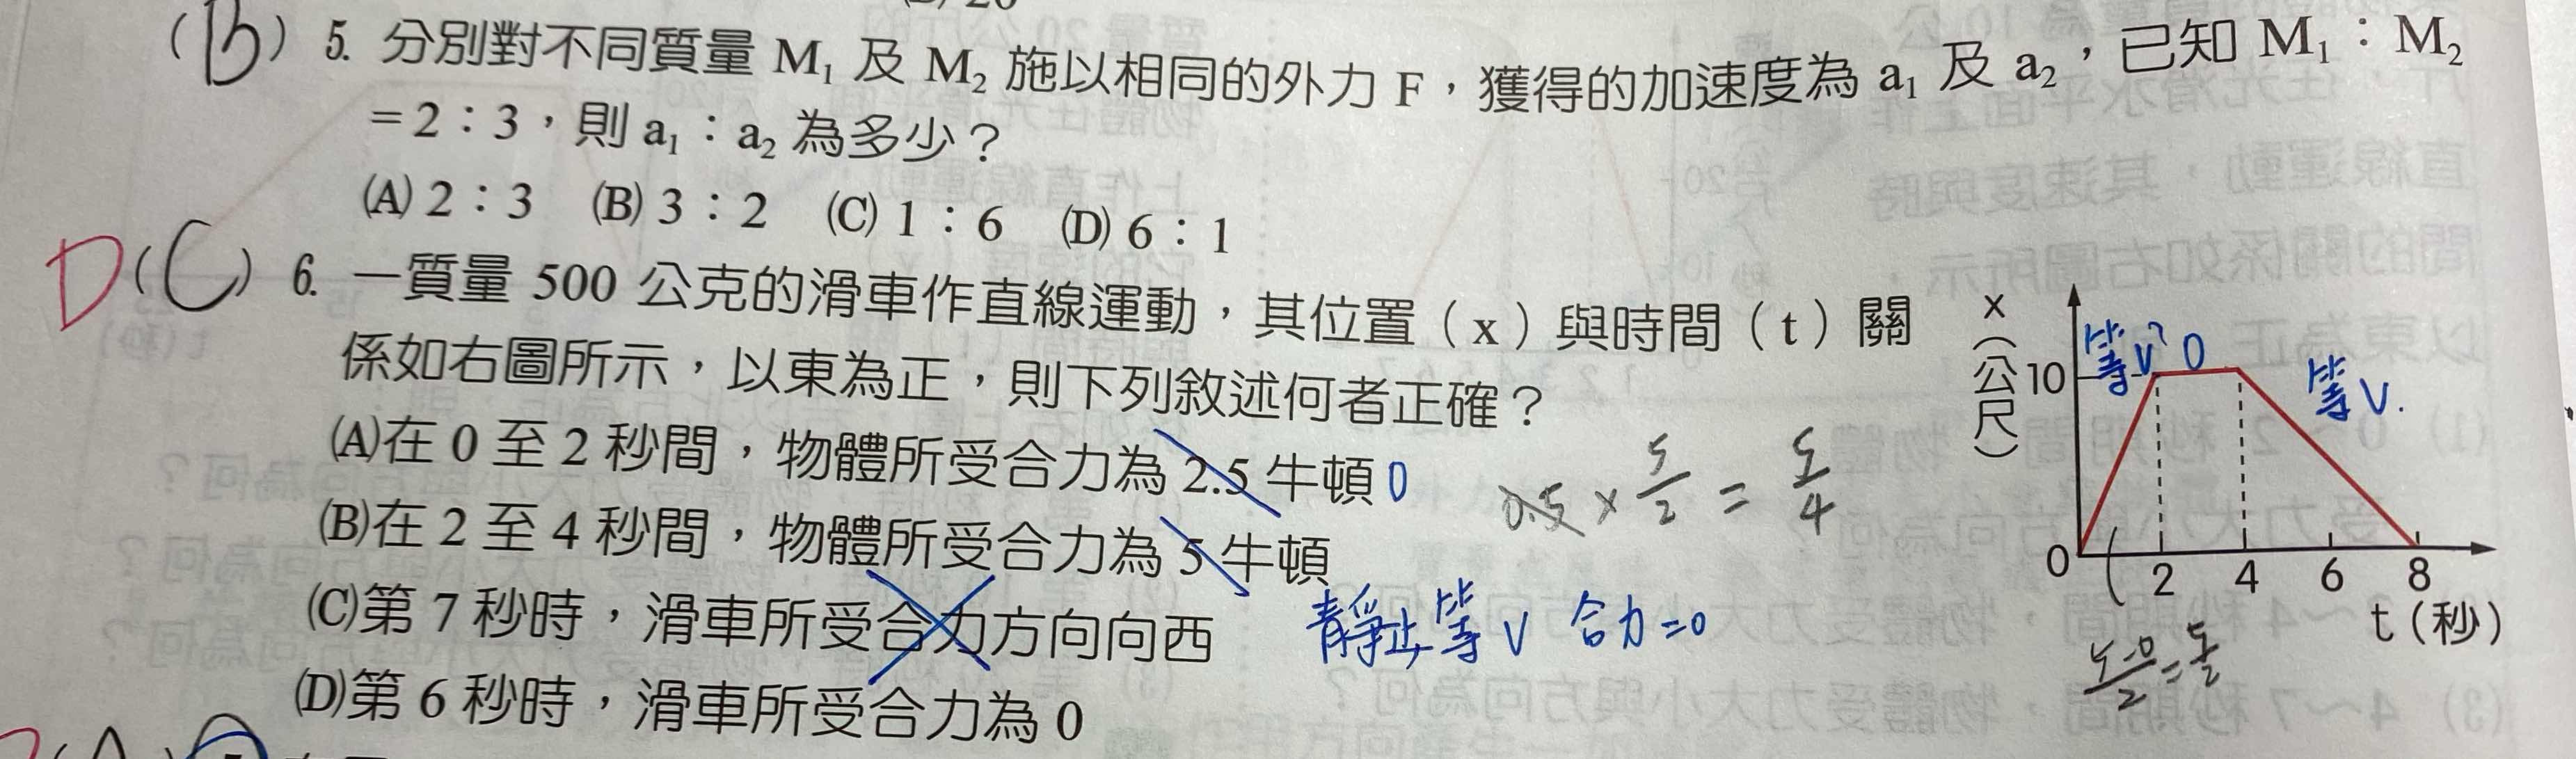 (B) 5. 分別對不同質量 M₁ 及 M₂ 施以相同的外力 F，獲得的加速度為 a₁ 及 a₂，已知 M₁：M₂
=2：3，則 a₁：a₂ 為多少？
(A) 2：3 (B) 3：2 (C) 1：6 (D) 6：1
D (C) 6. 一質量 500 公克的滑車作直線運動，其位置（x）與時間（t）關
係如右圖所示，以東為正，則下列敘述何者正確？
(A)在 0 至 2 秒間，物體所受合力為 2.5 牛頓 0
(B)在 2 至 4 秒間，物體所受合力為 5 牛頓
(C)第 7 秒時，滑車所受合力方向向西
(D)第 6 秒時，滑車所受合力為 0
0.5 × 5/2 = 5/4
靜止, 等 V 合力=0
x（公尺）
10
等 V
0
等 V.
0 2 4 6 8
t（秒）
5-0/2 = 5/2